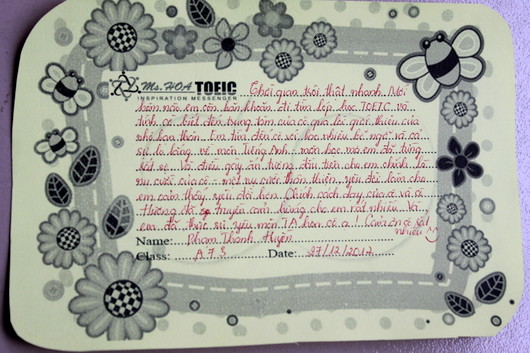 Ms. HOA TOEIC
INSPIRATION MESSENGER
Thời gian trôi thật nhanh. Mới
hôm nào em còn băn khoăn đi tìm lớp học TOEIC và
tình cờ biết đến trung tâm của cô qua lời giới thiệu của
nhỏ bạn thân. Em tìm đến cô với bao nhiêu bỡ ngỡ và cả
sự lo lắng về môn Tiếng Anh - môn học mà em đã từng
rất sợ. Và điều gây ấn tượng đầu tiên cho em chính là
nụ cười của cô, một nụ cười thân thiện, yêu đời làm cho
em cảm thấy yêu đời hơn. Chính cách dạy của cô và cô
Hương đã truyền cảm hứng cho em rất nhiều. Và
em đã thực sự yêu môn TA hơn cô ạ! Cảm ơn cô rất
nhiều
Name: Phạm Thành Huyền
Class: A 7.5 Date: 27/12/2012